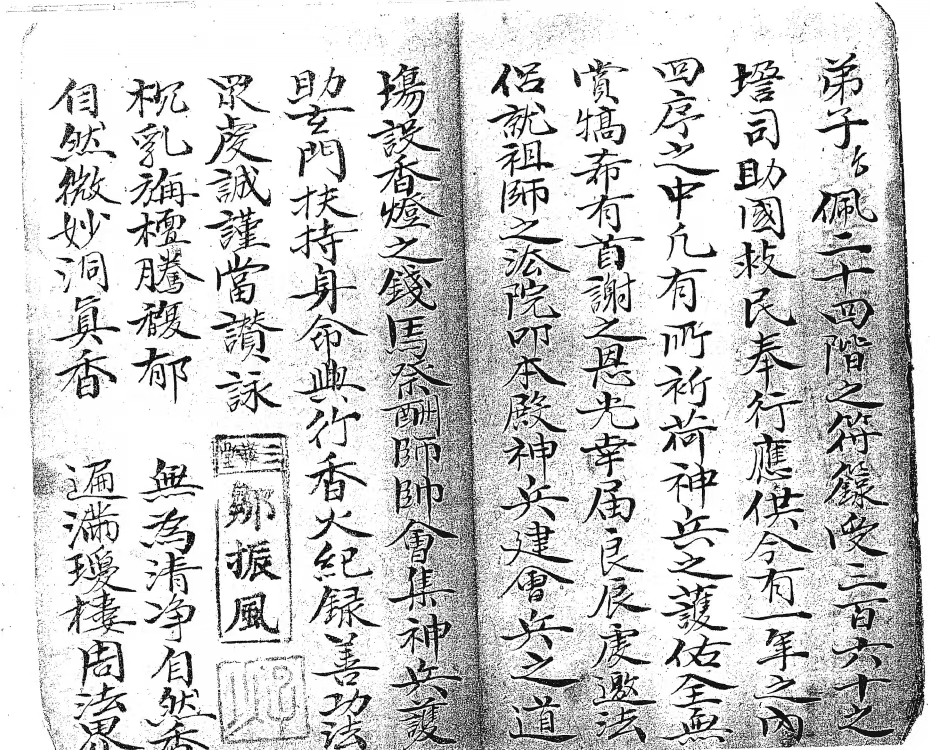 弟子厶佩二十四階之符籙受三百六十之
壇司助國救民奉行應供今有一年之內
四序之中凢有所祈荷神兵之護佑全無
賞犒希有首謝之恩光幸届良辰虔邀法
侶就祖師之法院叩本殿神兵建會兵之道
塲設香燈之錢馬祭酬師帥會集神兵護
助玄門扶持身命興行香火紀録善功法
眾虔誠謹當讃詠
鄒振風
柷乳旃檀騰馥郁 無為清净自然香
自然微妙洞真香 遍滿瓊樓周法界